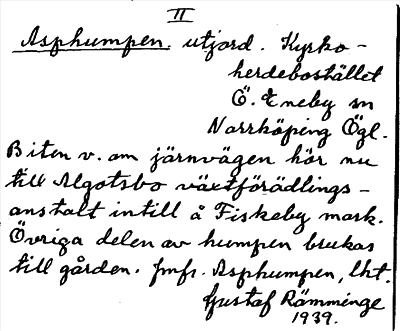 II
Asphumpen. utjord. Kyrko-
herdebostället
Ö. Eneby sn
Norrköping Ögl.
Biten v. om järnvägen hör nu
till Algotsbo växtförädlings-
anstalt intill å Fiskeby mark.
Övriga delen av humpen brukas
till gården. Jmfr. Asphumpen, lht.
Gustaf Rämminge
1939.